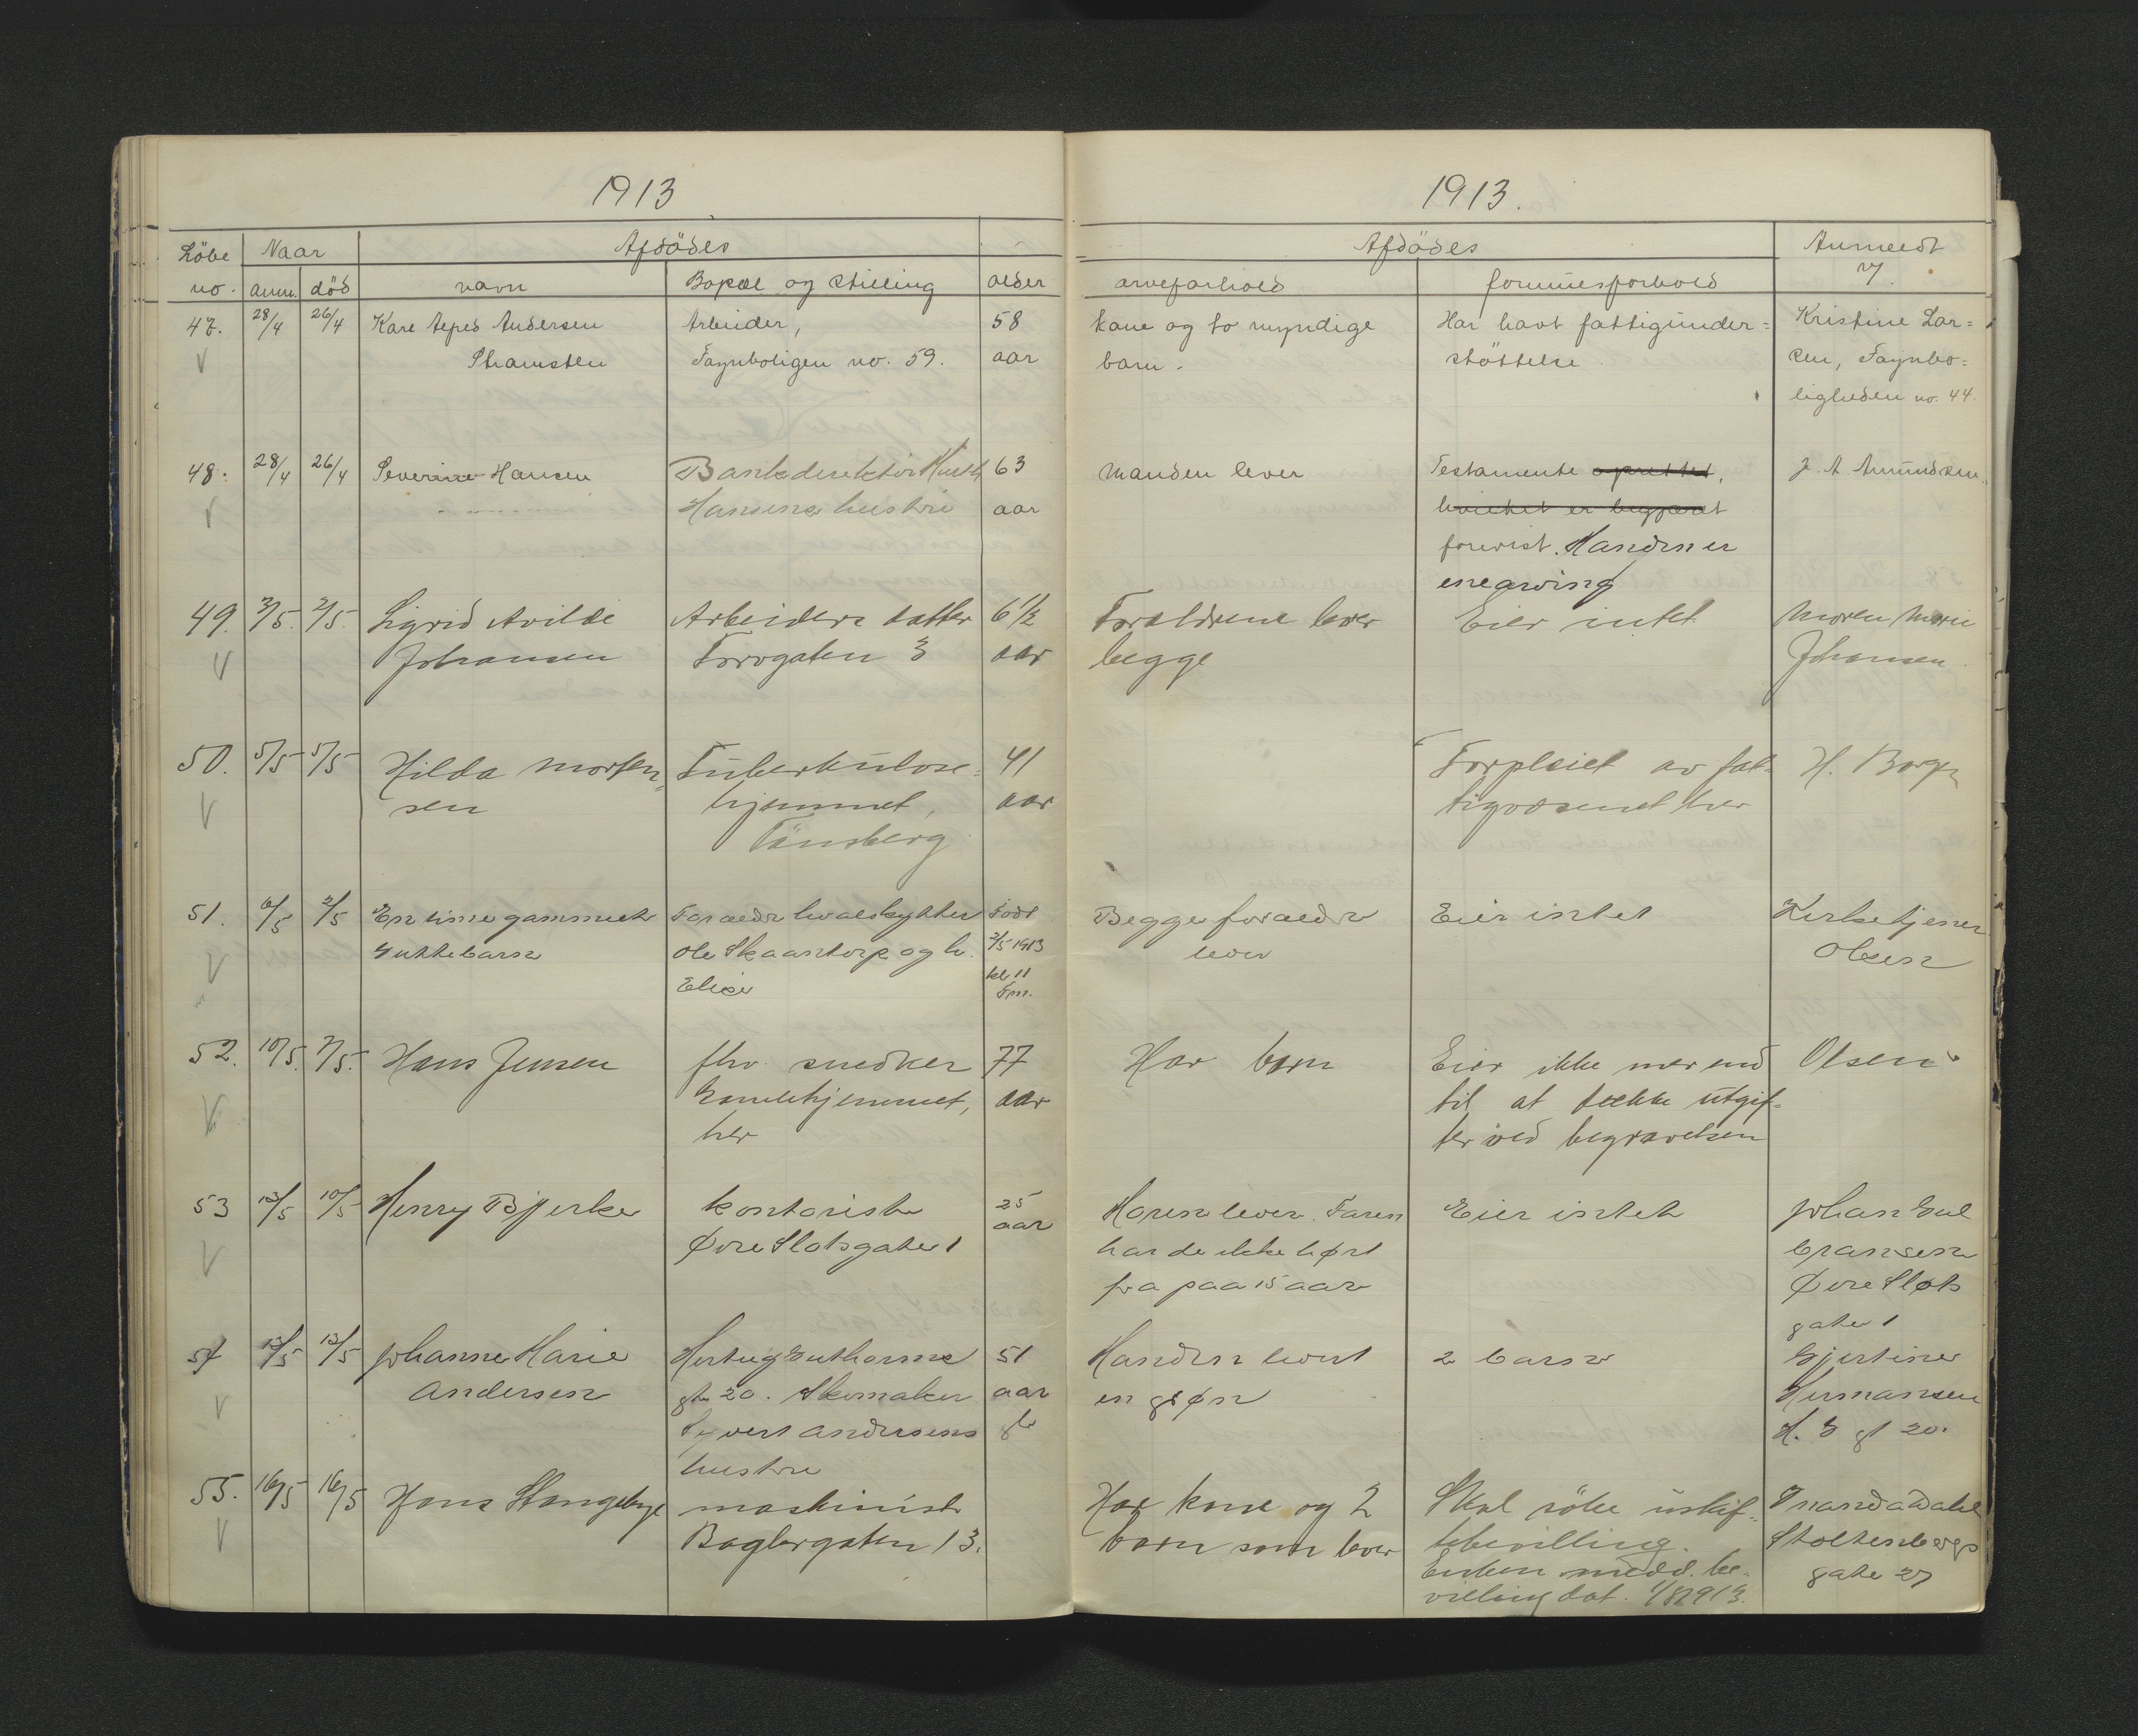 1913
Löbe Naar Afdödes
no. anm. död navn Bopæl og stilling alder
47. 28/4 26/4 Kare Andersen Arbeider, 58
Thamsten Føynboligen no. 59. aar
48. 28/4 26/4 Severine Hansen Bankdirektør 63
Hansens hustru aar
49. 2/5. 2/5. Sigrid Avilde Arbeiders datter 6 1/2
Johansen Torvgaten 3 aar
50. 5/5 5/5 Hilda Morten- Tuberkulose- 41
sen hjemmet, aar
Tönsberg
51. 6/5 2/5 En time gammelt Forældre hvalskytter Født
Guttebarn Ole Skaantorp og h. 2/5 1913
Elise kl 11
Fm.
52. 10/5. 7/5. Hans Jensen fhv. snedker 77
Gamlehjemmet, aar
her
53 13/5 10/5 Henry Bjerke kontorist 25
Øvre Slotsgate 1 aar
54 13/5 13/5 Johanne Marie Hertug Guthorms 51
Andersen gt. 20. Skomaker aar
Syvert Andersens gl
hustru
55. 16/5 16/5 Hans Stangebye maskinist
Baglergaten 13.
1913.
Afdödes Anmeldt
arveforhold formuesforhold av
kone og to myndige Har havt fattigunder- Kristine Lar-
barn. støttelse. sen, Føynbo-
ligheden no. 44.
Manden lever Testamente oprettet, J. A. Amundsen.
hvilket er begjæret
forevist. Manden er
enearving
Foreldrene lever Eier intet Moren Marie
begge Johansen.
Forpleiet av fat- H. Borge
tigvæsenet her
Begge forældre Eier intet Kirketjener
lever Olsen
Har barn Eier ikke mer end Olsen
til at dække utgif-
ter ved begravelsen
Moren lever. Faren Eier intet Johan Gul
har de ikke hørt bransen
fra paa 15 aar Øvre Slots
gate 1
Manden levet 2 barn Gjertine
en søn Hermansen
H. G gt 20.
Har kone og 2 Skal söke uskif- Tranda Dahl
barn som lever tebevilling. Stoltenbergs
Enken medd. be- gate 27
villing dat. 1/8 1913.